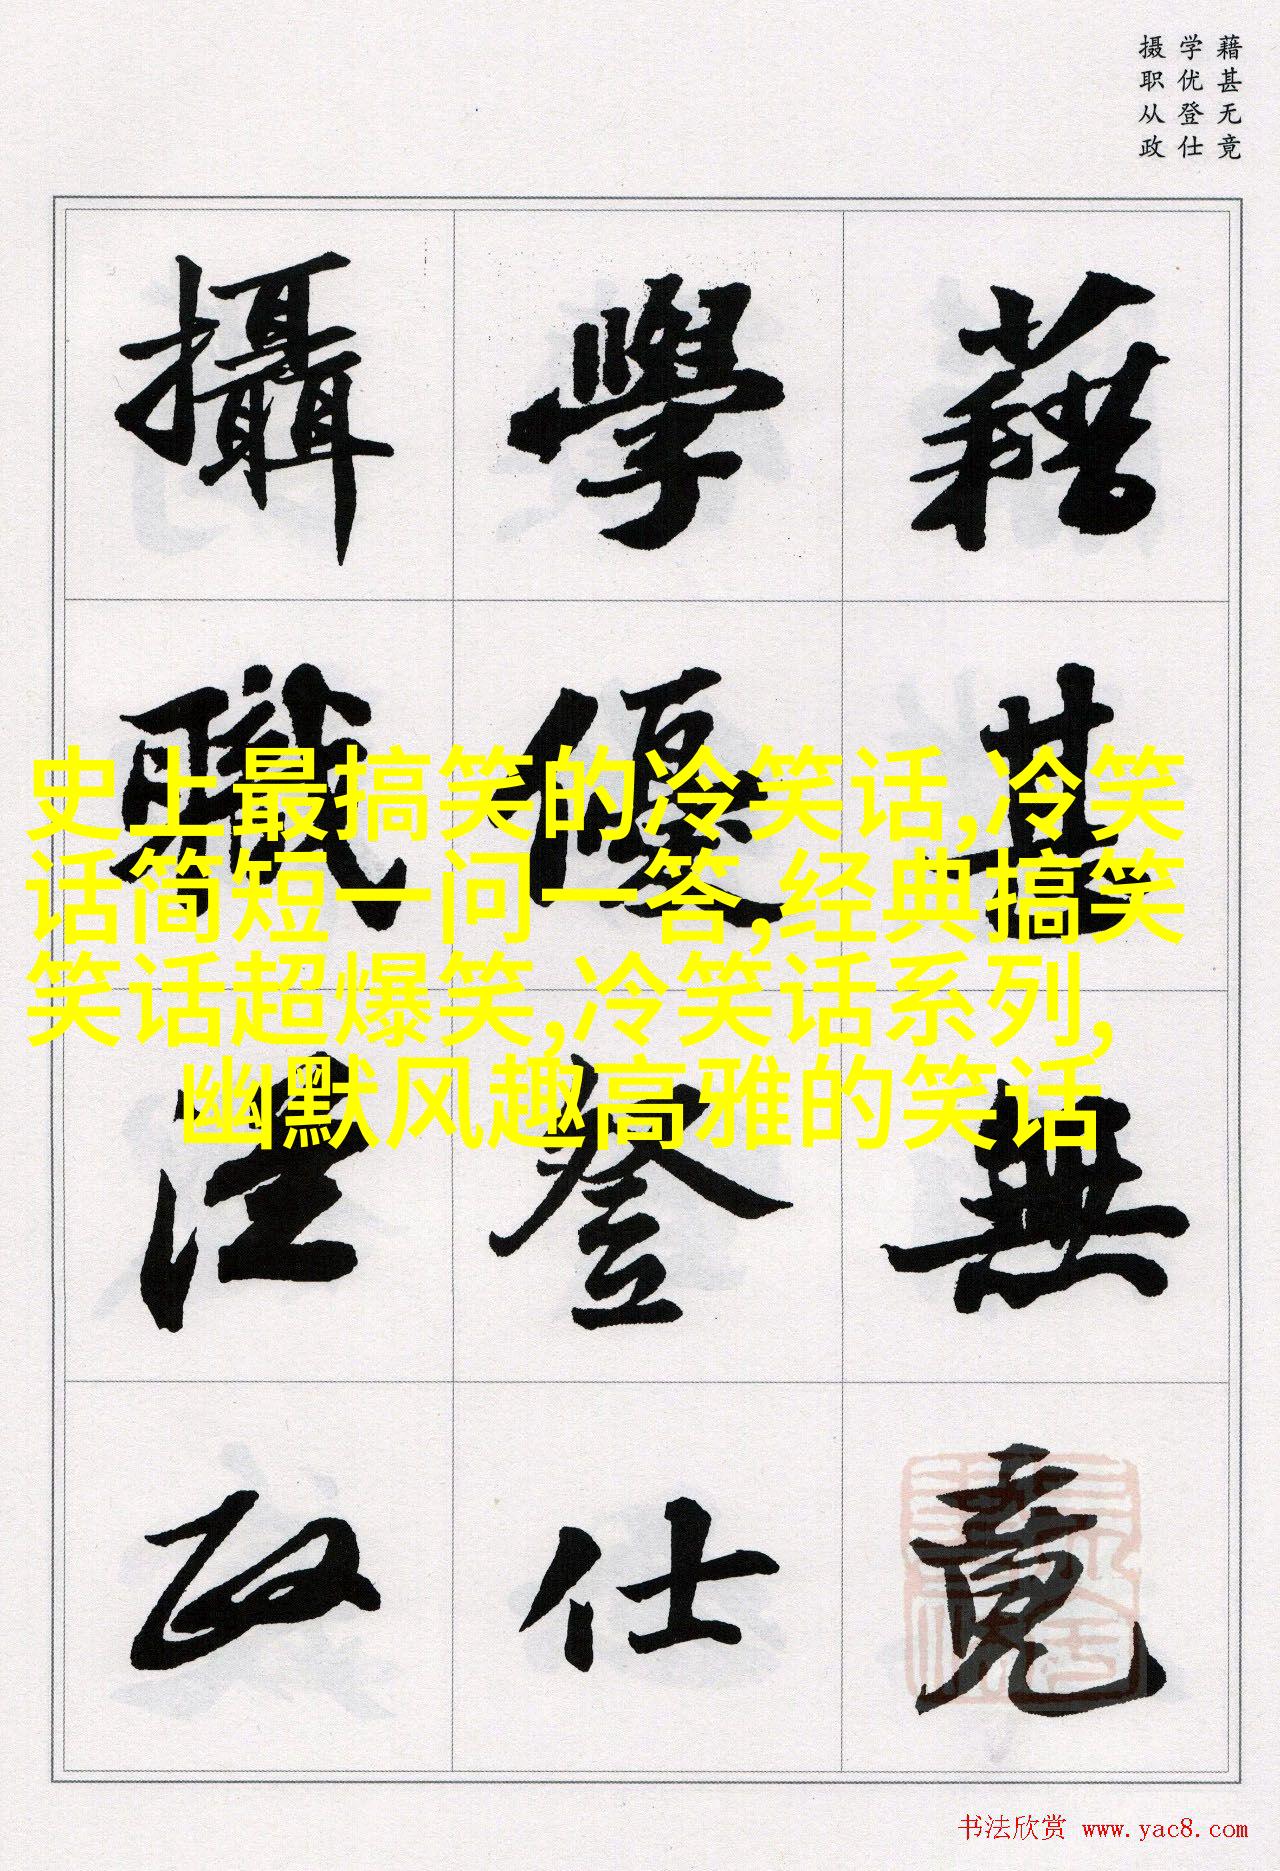 藉甚无竟
学优登仕
摄职从政
藉甚無竟
學優登仕
攝職從政
史上最搞笑的冷笑话,冷笑
话简短一问一答,经典搞笑
笑话超爆笑,冷笑话系列,
幽默风趣高雅的笑话
书法欣赏 www.yac8.com